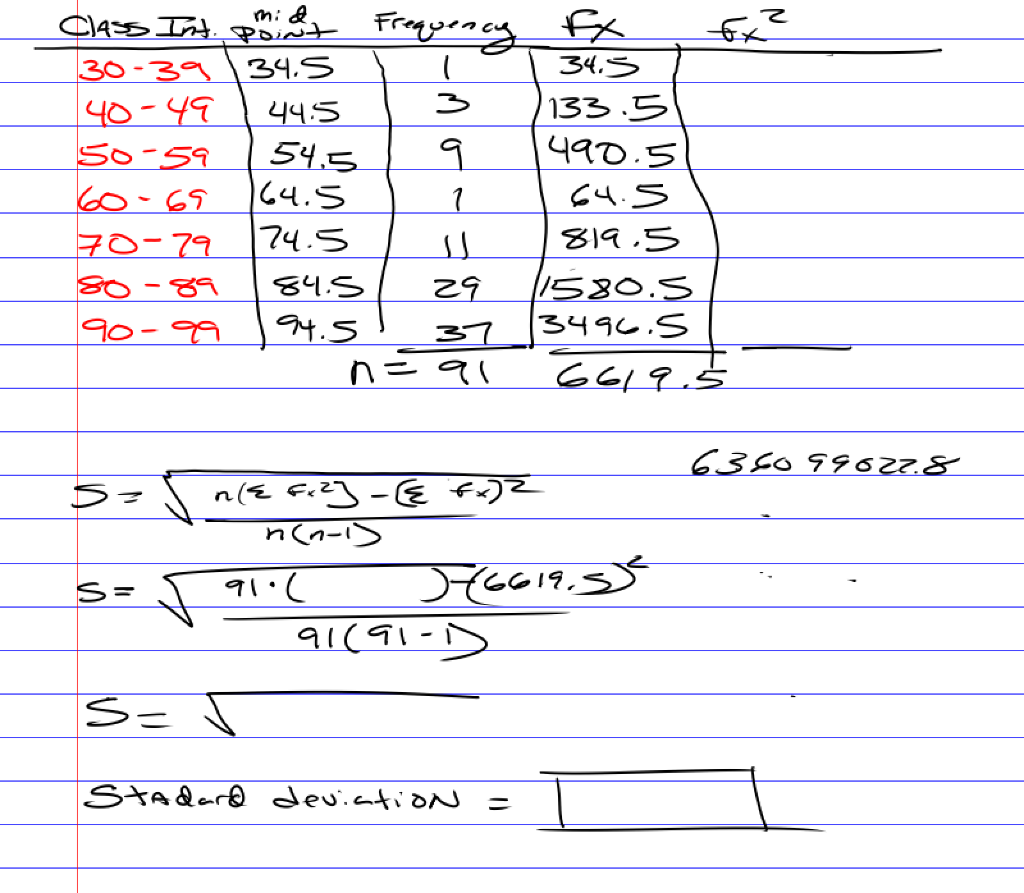 CLASS Int. mid point Frequency Fx Fx²
30-39 34.5 1 34.5
40-49 44.5 3 133.5
50-59 54.5 9 490.5
60-69 64.5 1 64.5
70-79 74.5 11 819.5
80-89 84.5 29 1580.5
90-99 94.5 37 3496.5
n= 91 6619.5
S= √ n(Σ Fx²) - (Σ fx)²
n(n-1)
S= √ 91·( ) - (6619.5)²
91(91-1)
S= √
STAdard deviation =